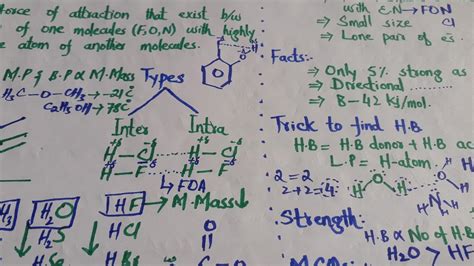 force of attraction that exist b/w
of one molecules (F,O,N) with highly
e atom of another molecules.
M.P & B.P ∝ M.Mass
H₃C-O-CH₃→-21℃
C₂H₅OH→78℃
Types
Inter
Intra
H-Cl
H-F
H-F
↳ FOA
H₂O
H₂S
HF → M.Mass↓
HCl
O
C
with C,N→FON
⇒ Small size Cl
⇒ Lone pair of es.
Facts:-
⇒ Only 5% strong as
⇒ Directional
⇒ 8-42 kJ/mol.
Trick to find H.B
H.B = H.B donor + H.B ac
L.P = H-atom.
2 = 2
2+2=4
H O H
H N H
H
Strength:
H.B ∝ No of H.B
H₂O > HF